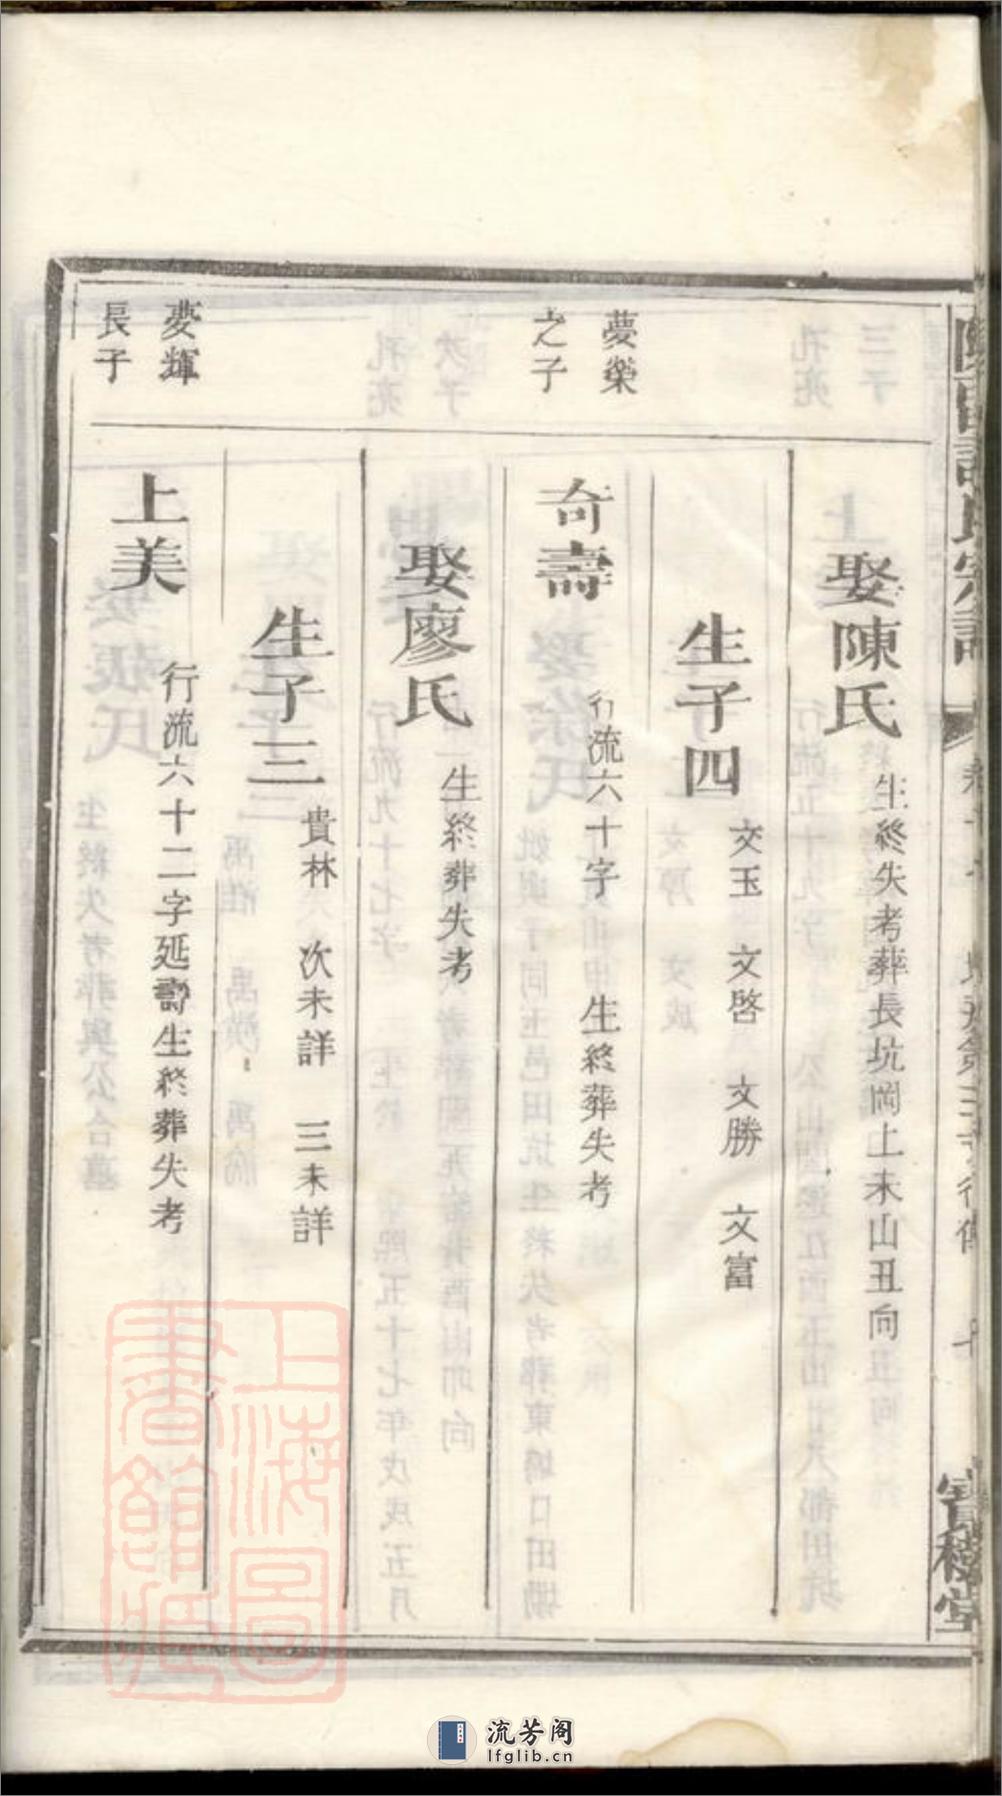 娶陳氏
生終失考葬長坑岡上未山丑向
生子四
文玉 文啓 文勝 文富
夢榮
之子
奇壽
行流六十字 生終葬失考
娶廖氏
生終葬失考
生子三
貴林 次未詳 三未詳
夢輝
長子
上美
行流六十二字延壽生終葬失考
寶稼堂
上海圖書館藏
流芳阁
lfglib.cn